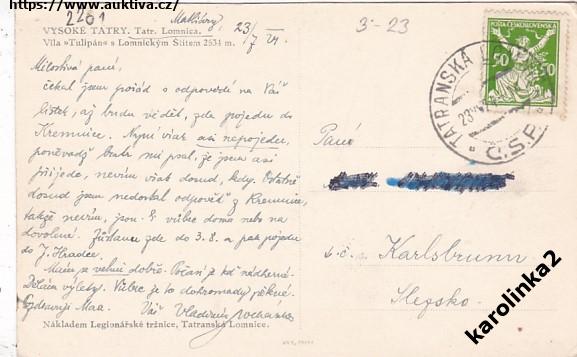 https://www.auktiva.cz/
2201
Matliáry 23/7 24.
3-23
VYSOKÉ TATRY. Tatr. Lomnica.
Vila »Tulipán« s Lomnickým Štítem 2634 m.
Milostivá paní,
čekal jsem pořád s odpovědí na Váš
lístek, až budu vědět, zda pojedu do
Kremnice. Nyní však asi nepojedu,
poněvadž bratr mi psal, že jsem asi
přijede, nevím však dosud, kdy. Ostatně
dosud jsem nedostal odpověď z Kremnice,
takže nevím, jsou-li vůbec doma nebo na
dovolené. Zůstanu zde do 3.8. a pak pojedu
do J. Hradce.
Mám se velmi dobře. Počasí je teď nádherné.
Dělám výlety. Vůbec je to dohromady pěkné.
Váš Vladimír
Nákladem Legionářské tržnice, Tatranská Lomnice.
POŠTA ČESKOSLOVENSKÁ
50 50
TATRANSKÁ
Č.S.P.
Paní
Karlsbrunn
Slezsko.
karolinka2